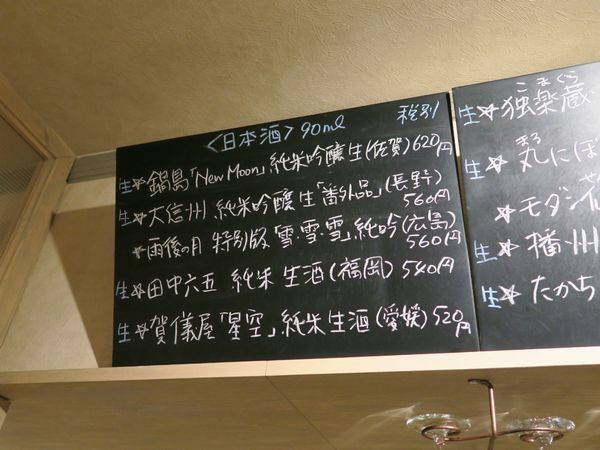 〈日本酒〉90ml 税別
生☆鍋島「New Moon」純米吟醸生(佐賀)620円
生☆大信州 純米吟醸生「番外品」(長野)560円
☆雨後の月 特別版 雪・雪・雪」純吟(広島)560円
生☆田中六五 純米 生酒(福岡)540円
生☆賀儀屋「星空」純米生酒(愛媛)520円
こまぐら
生☆独楽蔵
まる
生☆丸にぼ
☆モダン
生☆播州
生☆たかち